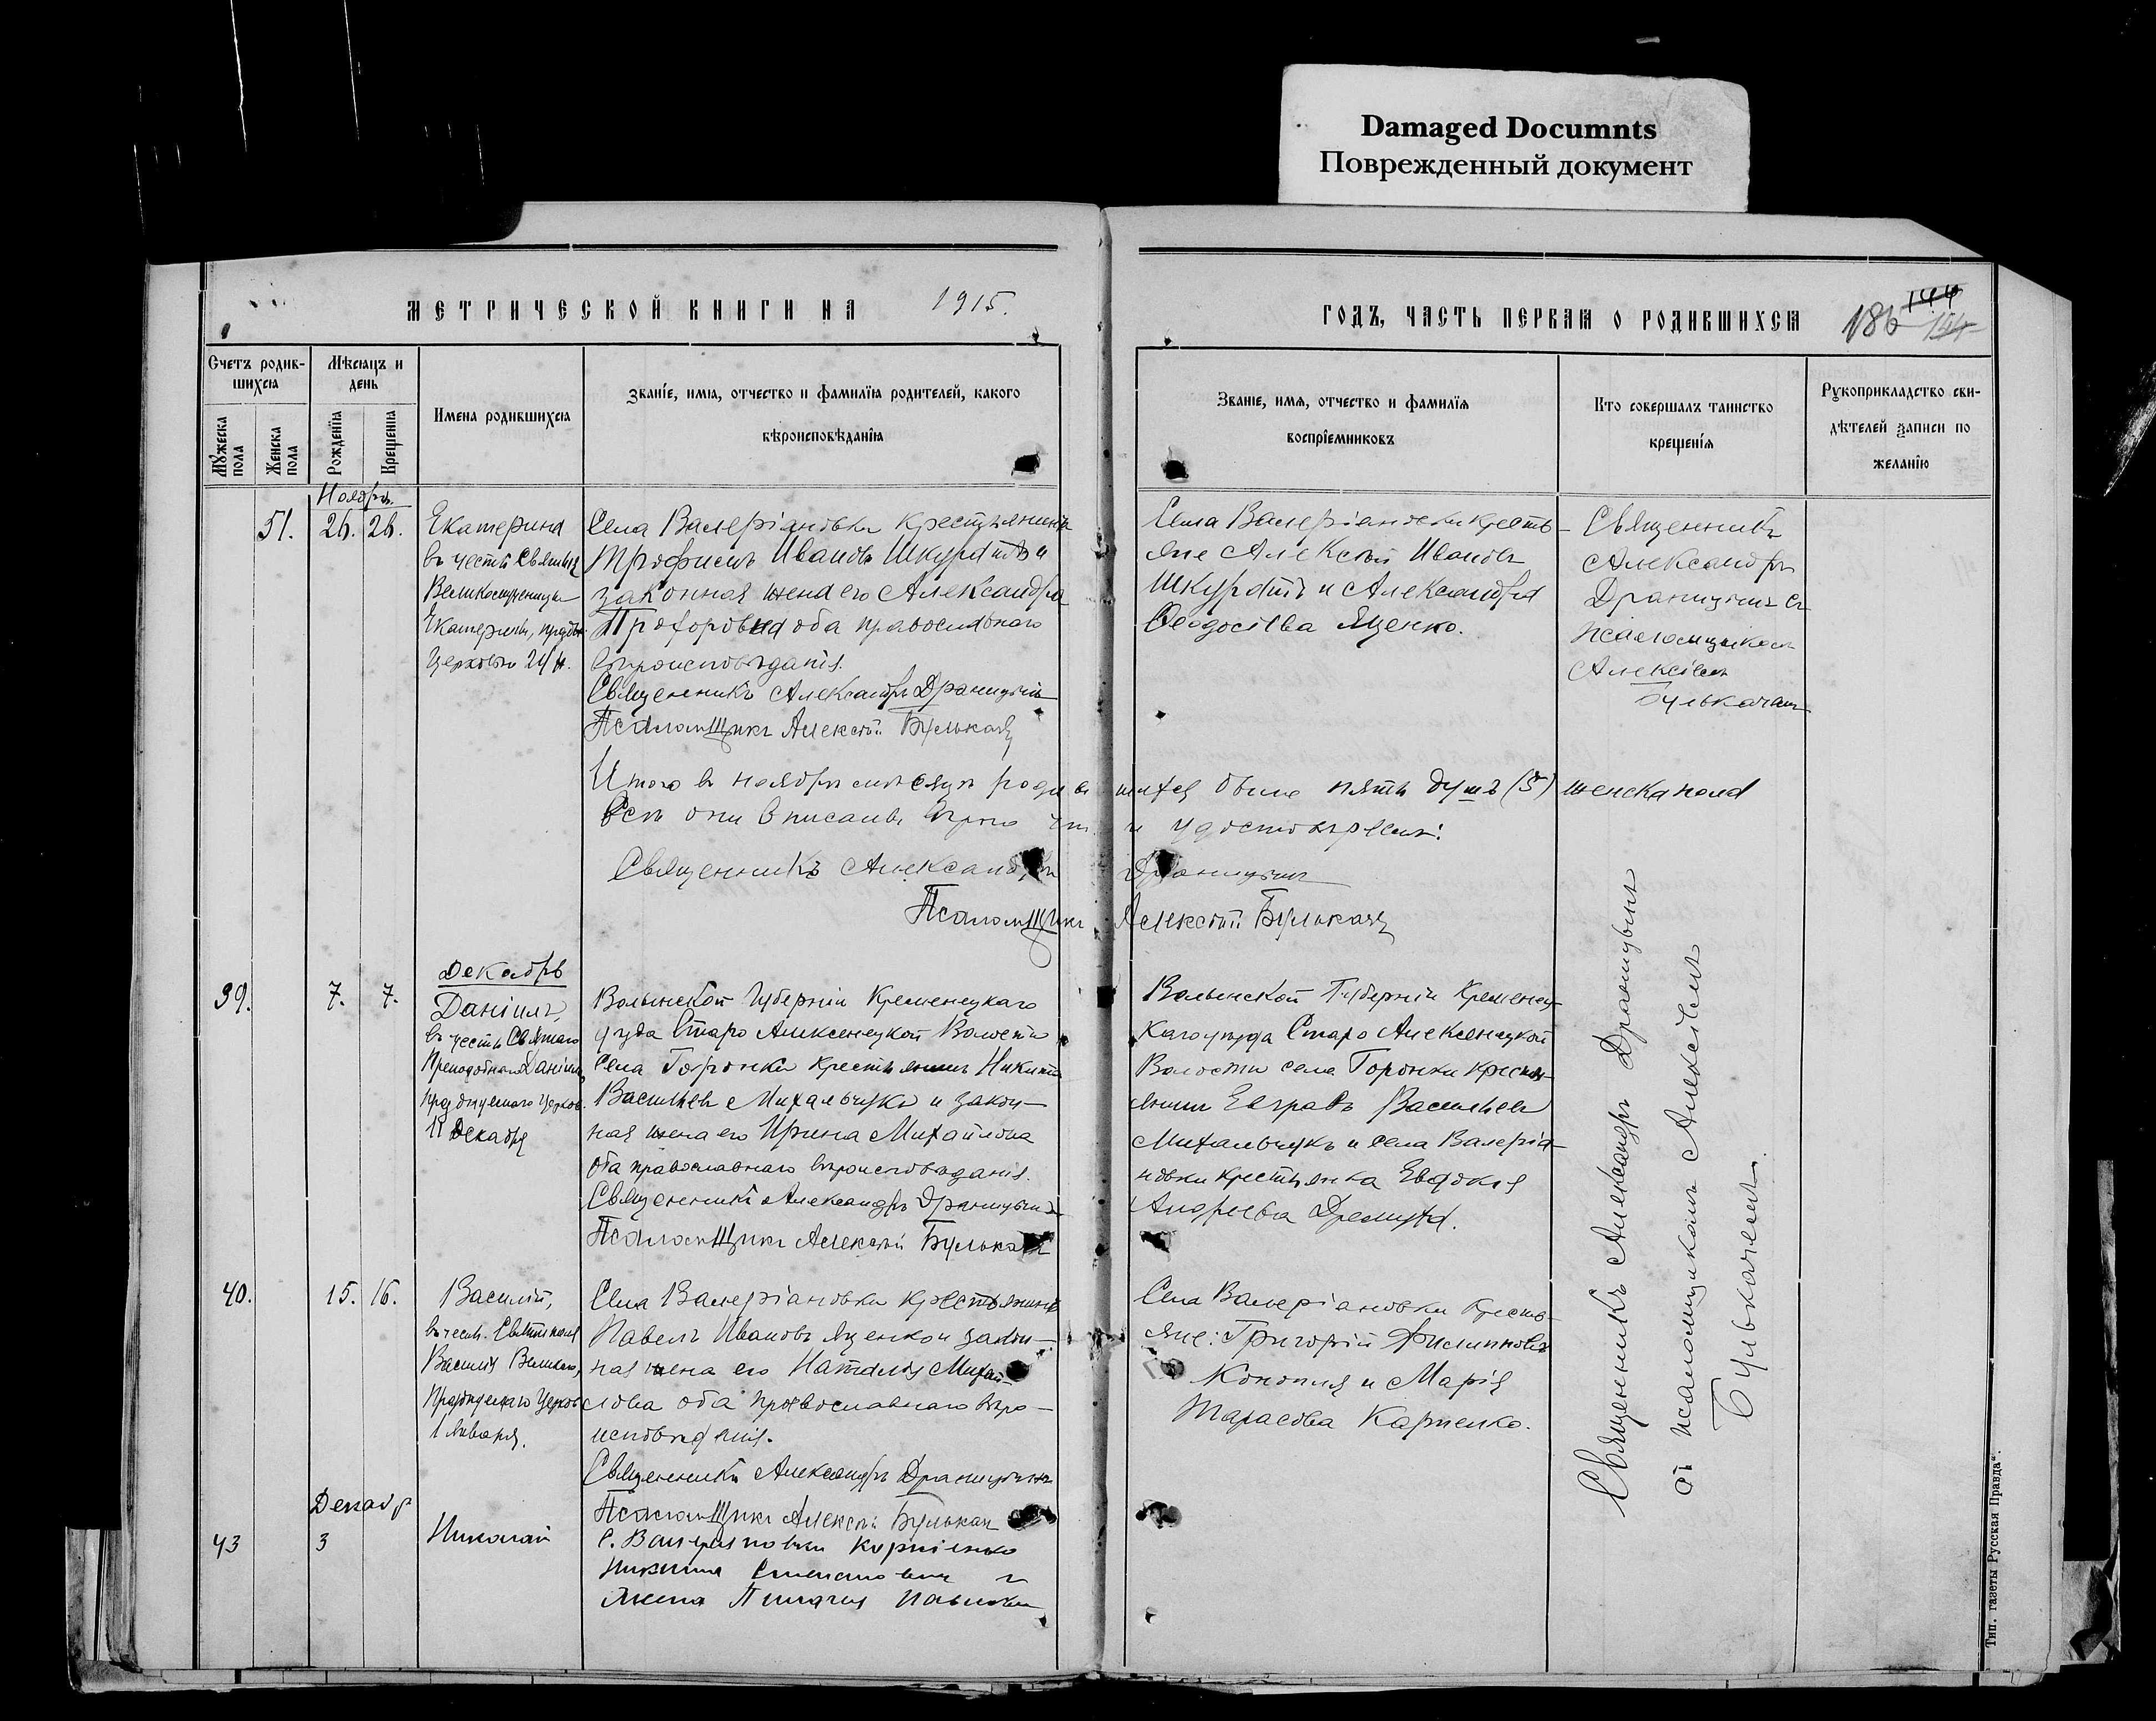 Damaged Documnts
Поврежденный документ
МЕТРИЧЕСКОЙ КНИГИ НА 1915.
ГОДЪ, ЧАСТЬ ПЕРВАЯ О РОДИВШИХСЯ
186 144
144
Счетъ родив-
шихся
Мужеска пола
Женска пола
Мѣсяцъ и
день
Рожденія
Крещенія
Имена родившихся
Званіе, имя, отчество и фамилія родителей, какого
вѣроисповѣданія
Званіе, имя, отчество и фамилія
воспріемниковъ
Кто совершалъ таинство
крещенія
Рукоприкладство сви-
дѣтелей записи по
желанію
Ноябрь
51. 26. 26.
Екатерина
въ честь Святыя
Великомученицы
Екатерины, празд.
Церковью 24 н.
Села Валеріановки крестьянинъ
Трофимъ Ивановъ Шкуратъ и
законная жена его Александра
Прохоровна оба православнаго
вѣроисповѣданія.
Священникъ Александръ Драницынъ
Псаломщикъ Алексѣй Булькачъ
Села Валеріановки кресть-
яне Алексѣй Ивановъ
Шкуратъ и Александра
Ѳеодосіева Яценко.
Священникъ
Александръ
Драницынъ съ
псаломщикомъ
Алексіемъ
Булькачемъ
Итого въ ноябрѣ мѣсяцѣ родившихся было пять душъ (5) женска пола
Всѣ они вписаны вѣрно и удостовѣряемъ:
Священникъ Александръ Драницынъ
Псаломщикъ Алексѣй Булькачъ
Декабрь
39. 7. 7.
Даніилъ,
въ честь Святаго
Преподобнаго Даніила,
празднуемаго Церков.
11 Декабря
Волынской Губерніи Кременецкаго
уѣзда Старо Алексенецкой Волости
Села Горонки крестьянинъ Никита
Васильевъ Михальчукъ и закон-
ная жена его Ирина Михайлова
оба православнаго вѣроисповѣданія.
Священникъ Александръ Драницынъ
Псаломщикъ Алексѣй Булькачъ
Волынской Губерніи Кременец-
каго уѣзда Старо Алексенецкой
Волости села Горонки кресть-
янинъ Евграфъ Васильевъ
Михальчукъ и села Валеріа-
новки крестьянка Евдокія
Андреева Дремуха.
Священникъ Александръ Драницынъ
съ псаломщикомъ Алексіемъ
Булькачемъ.
40. 15. 16.
Василій,
въ честь Святителя
Василія Великаго,
Празднуемаго Церков.
1 Января.
Села Валеріановки крестьянинъ
Павелъ Ивановъ Яценко и закон-
ная жена его Наталія Михай-
лова оба православнаго вѣро-
исповѣданія.
Священникъ Александръ Драницынъ
Псаломщикъ Алексѣй Булькач
Села Валеріановки кресть-
яне: Григорій Филипповъ
Конопля и Марія
Тарасова Карпенко.
Декабр
43 3
Николай
С. Валерияновки Корниенко
Никита Степанович и
жена Пелагия
Тип. газеты Русская Правда".